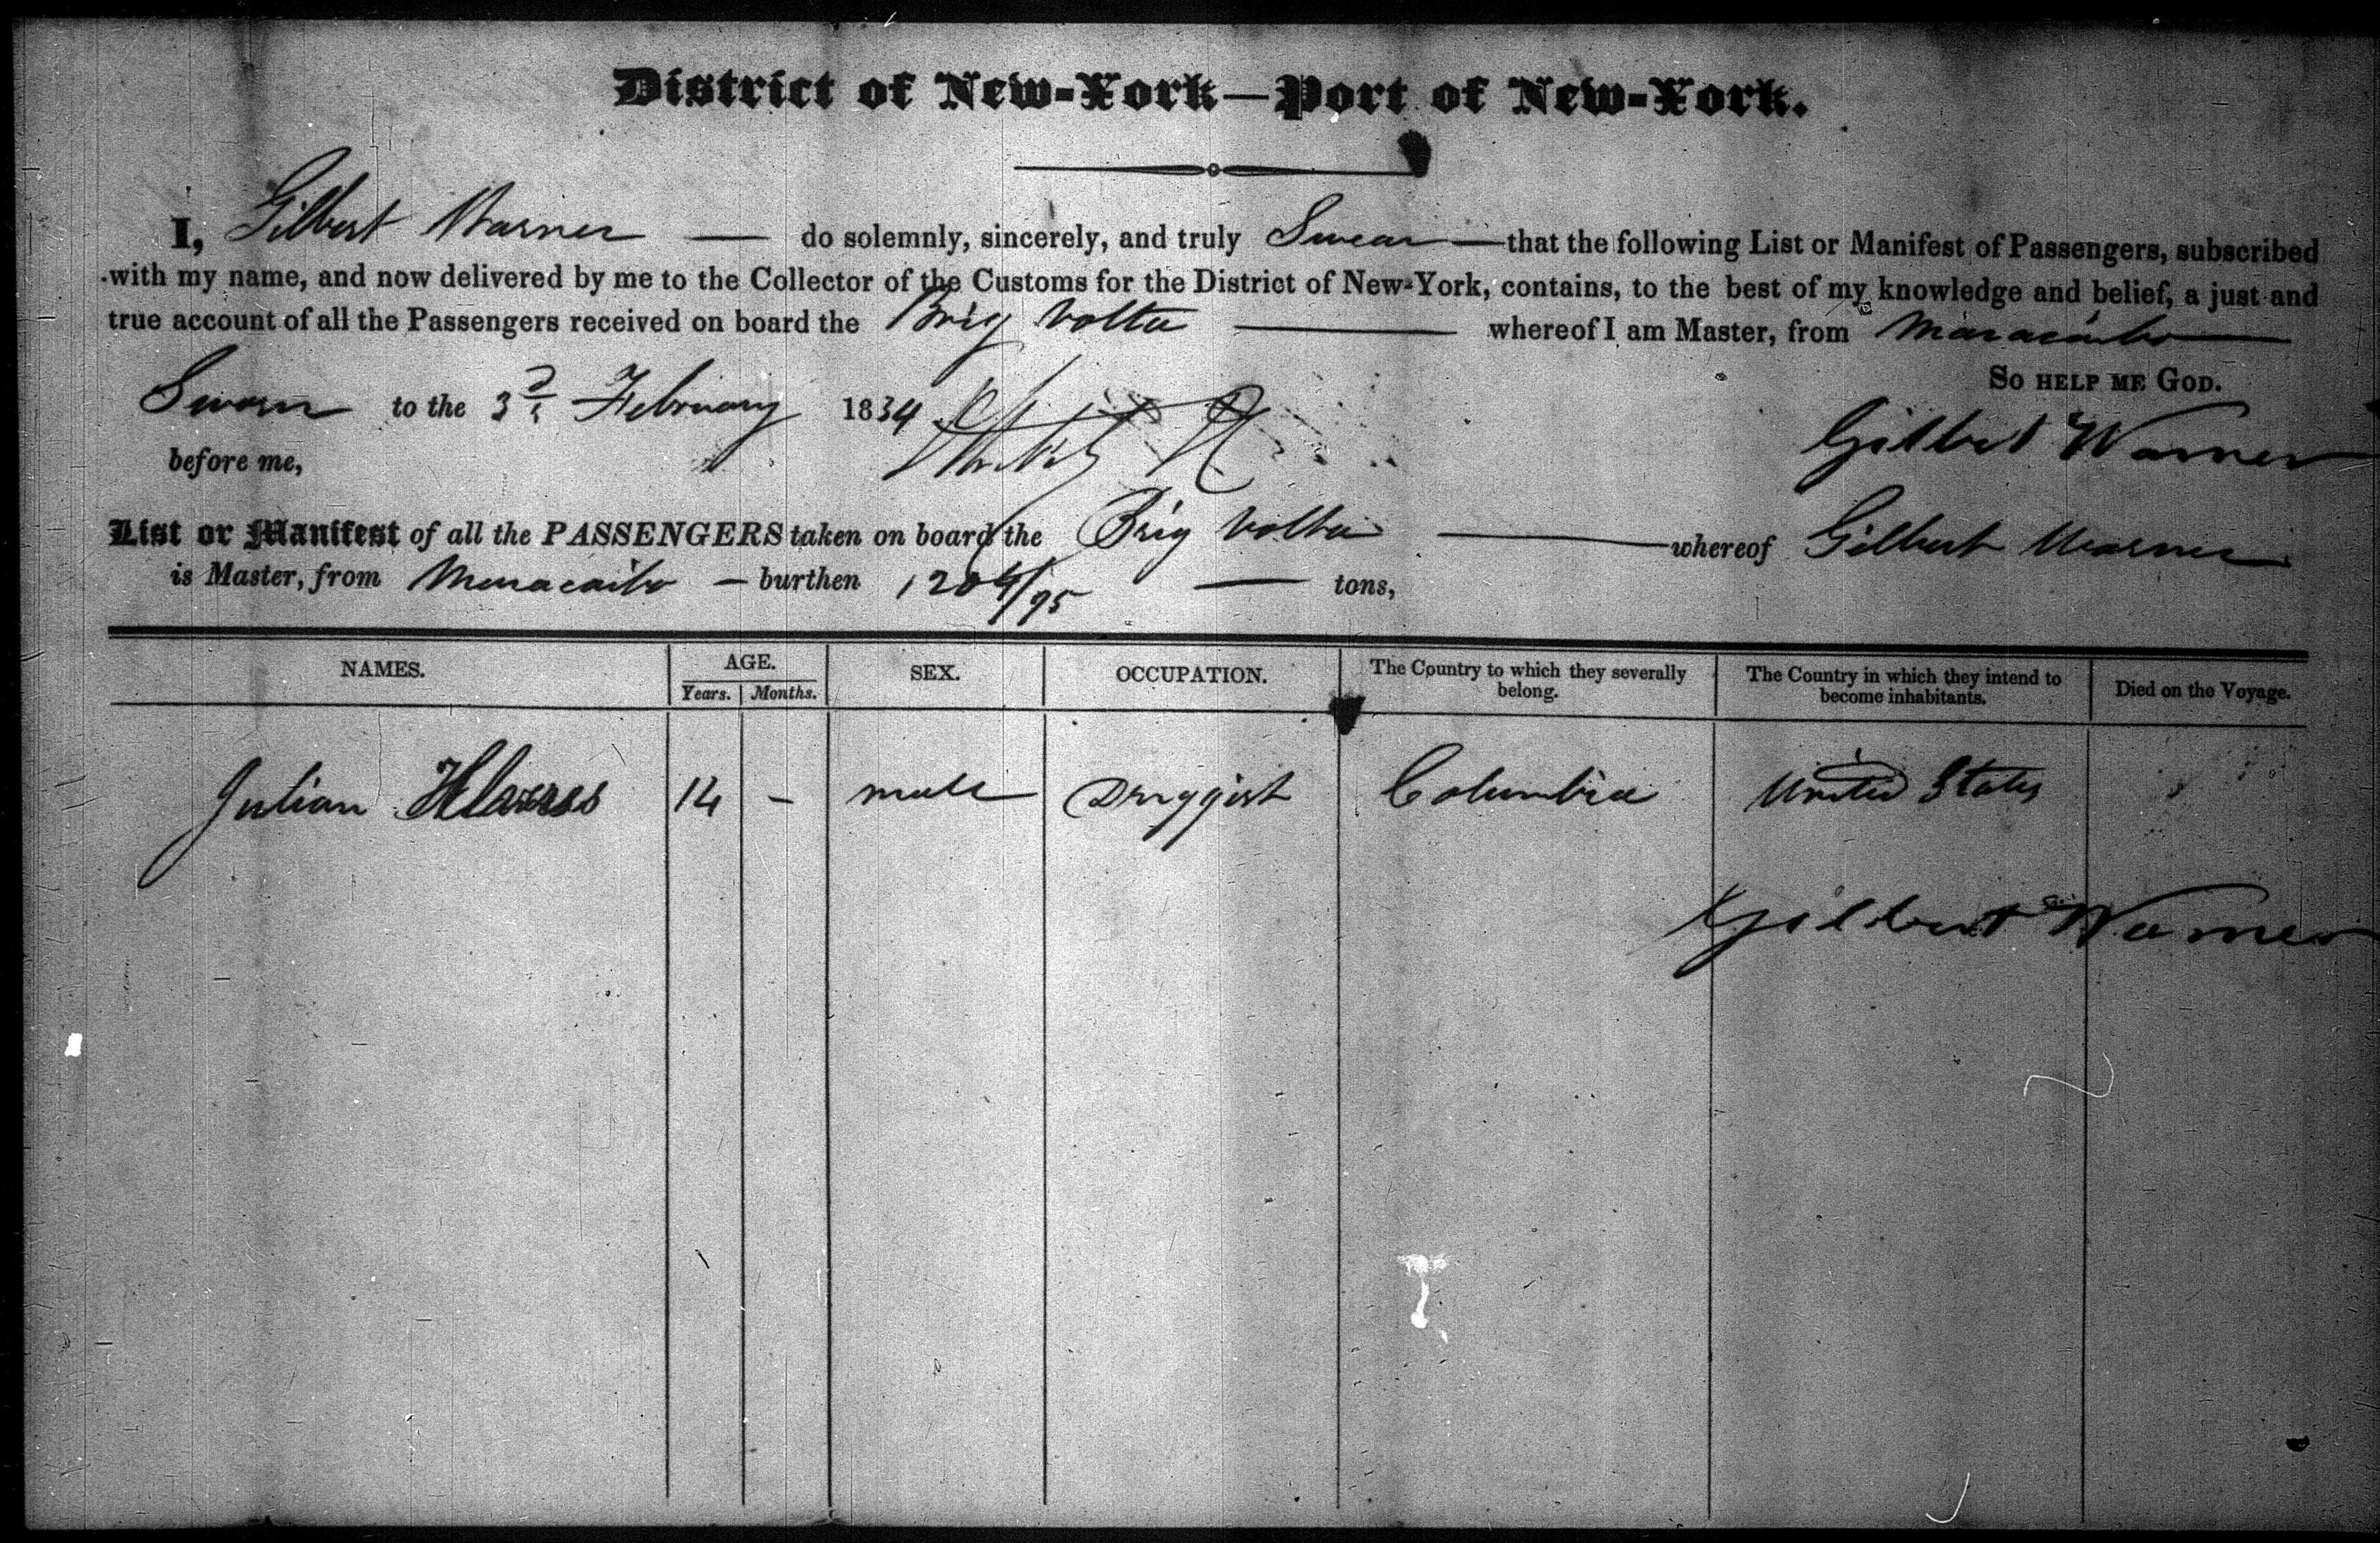 District of New-York—Port of New-York.
I, Gilbert Warner — do solemnly, sincerely, and truly Swear — that the following List or Manifest of Passengers, subscribed
with my name, and now delivered by me to the Collector of the Customs for the District of New-York, contains, to the best of my knowledge and belief, a just and
true account of all the Passengers received on board the Brig Volta — whereof I am Master, from Maracaibo —
So HELP ME GOD.
Sworn to the 3d February 1834
Gilbert Warner
before me,
List or Manifest of all the PASSENGERS taken on board the Brig Volta — whereof Gilbert Warner
is Master, from Maracaibo — burthen /95 — tons,
NAMES. AGE. SEX. OCCUPATION. The Country to which they severally belong. The Country in which they intend to become inhabitants. Died on the Voyage.
Years. Months.
Julian 14 – male Druggist Columbia United States
Gilbert Warner